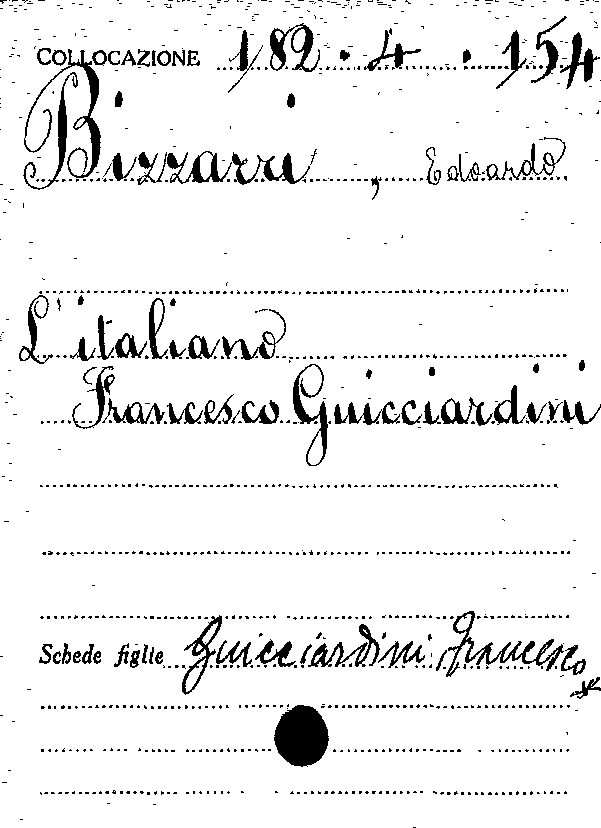 COLLOCAZIONE 182.4.154
Bizzarri, Edoardo
L'italiano
Francesco Guicciardini
Schede figlie Guicciardini, Francesco